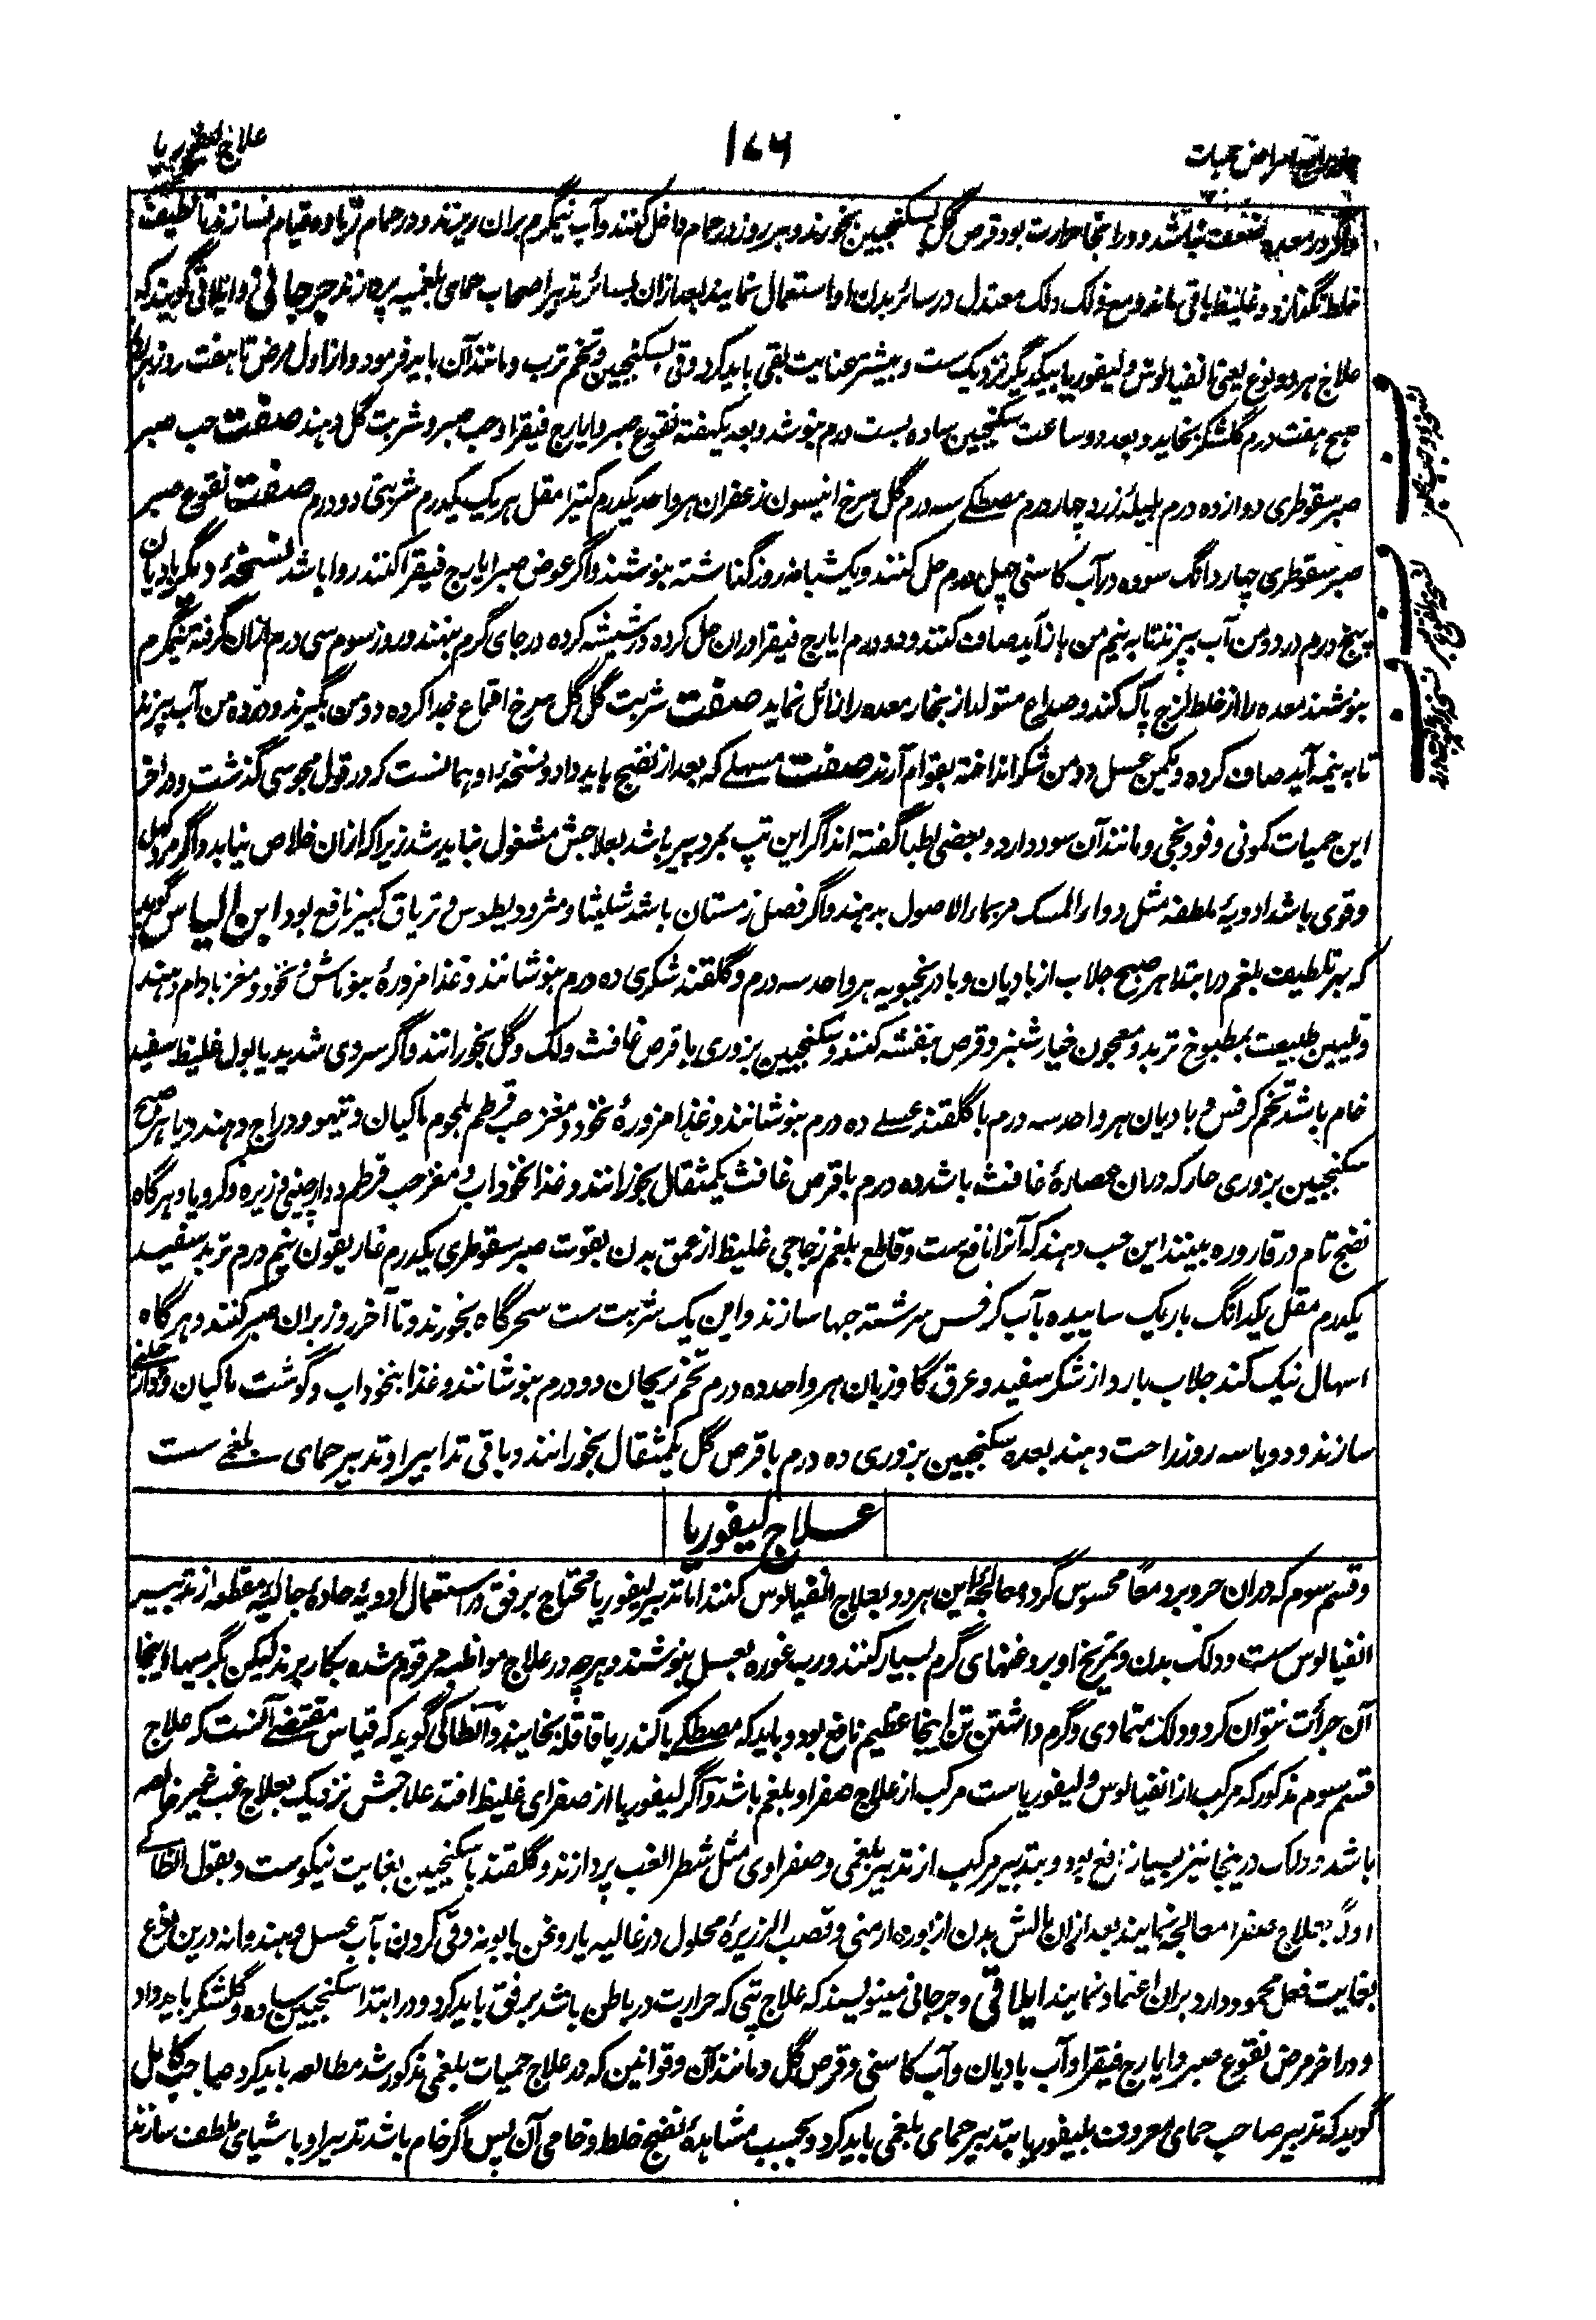 علاج لیفوریا
۱۷۶
امراض حمیات
واگر در معده ضعف نباشد و در اینجا حرارت بود قرص گل بسکنجبین بخورند و هر روز در حمام داخل کنند و آب نیمگرم بران ریزند و در حمام زیاده قیام نسازند تا لطیف
خلط نگدازد و غلیظ باقی ماند و مع ذلک دلک معتدل در سائر بدن او استعمال نمایند بعد ازان بسائر تدبیر اصحاب حمای بلغمیه پردازند جرجانی و ایلاقی گویند که
علاج هر دو نوع یعنی انفیالوس و لیفوریا بیکدیگر نزدیک ست و بیشتر عنایت بقی باید کرد و قی بسکنجبین و تخم ترب و مانند آن باید فرمود و از اول مرض تا هفت روز هر
صبح هفت درم گلشکر بخاید و بعد دو ساعت سکنجبین ساده بست درم بنوشد و بعد یکهفته نقوع صبر و ایارج فیقرا و حب صبر و شربت گل دهند صفت حب صبر
صبر سقوطری دوازده درم هلیله زرد چهار درم مصطکی سه درم گل سرخ انیسون زعفران هر واحد یکدرم کتیرا مقل هر یک یکدرم شربتی دو درم صفت نقوع صبر
صبر سقوطری چهار دانگ سوده در آب کاسنی چهل درم حل کنند و یک شبانه روز گذاشته بنوشند و اگر عوض صبر ایارج فیقرا کنند روا باشد نسخهٔ دیگر بادیان
پنج درم در دو من آب بپزند تا به نیم من باز آید صاف کنند و دو درم ایارج فیقرا دران حل کرده در شیشه کرده در جای گرم بنهند و روز سوم سی درم ازان گرفته نیمگرم
بنوشند معده را از خلط لزج پاک کند و صداع متولد از بخار معده را زائل نماید صفت شربت گل گل سرخ اقماع جدا کرده دو من بگیرند و در ده من آب بپزند
تا به نیمه آید صاف کرده و یکمن عسل دو من شکر انداخته بقوام آرند صفت مسهلی که بعد از نضج باید داد و نسخهٔ او همانست که در قول مجوسی گذشت و در آخر
این حمیات کمونی و فودنجی و مانند آن سود دارد و بعضی اطبا گفته اند اگر این تپ بمرد پیر باشد بعلاجش مشغول نباید شد زیرا که ازان خلاص نیابد و اگر مرد کهل
و قوی باشد ادویهٔ ملطفه مثل دواء المسک مر بماء الاصول بدهند و اگر فصل زمستان باشد شلیثا و مثرودیطوس و تریاق کبیر نافع بود ابن الیاس گوید
که بهر تلطیف بلغم در ابتدا هر صبح جلاب از بادیان و بادرنجبویه هر واحد سه درم و گلقند شکری ده درم بنوشانند و غذا مزورهٔ بنوماش و نخود و مغز بادام دهند
و تلیین طبیعت بمطبوخ تربد و معجون خیارشنبر و قرص بنفشه کنند و سکنجبین بزوری با قرص غافث و لک و گل بخورانند و اگر سردی شدید یا بول غلیظ سفید
خام باشد تخم کرفس و بادیان هر واحد سه درم با گلقند عسلی ده درم بنوشانند و غذا مزورهٔ نخود و مغز حب قرطم بلحوم ماکیان و تیهو و دراج دهند و یا هر صبح
سکنجبین بزوری حار که دران عصارهٔ غافث باشد ده درم با قرص غافث یکمثقال بخورانند و غذا نخوداب و مغز حب قرطم و دارچینی و زیره و کرویا و هرگاه
نضج تام در قاروره بینند این حب دهند که آنرا نافع ست و قاطع بلغم زجاجی غلیظ از عمق بدن بقوت صبر سقوطری یکدرم غاریقون نیم درم تربد سفید
یکدرم مقل یکدانگ باریک سائیده بآب کرفس سرشته حبها سازند و این یک شربت ست سحرگاه بخورند و تا آخر روز بران صبر کنند و هرگاه
اسهال نیک کند جلاب بارد از شکر سفید و عرق گاوزبان هر واحد ده درم تخم ریحان دو درم بنوشانند و غذا بنخوداب و گوشت ماکیان و دارچینی
سازند و دو یا سه روز راحت دهند بعده سکنجبین بزوری ده درم با قرص گل یکمثقال بخورانند و باقی تدابیر او تدبیر حمای بلغمی ست
علاج لیفوریا
و قسم سوم که دران حر و برد معاً محسوس گردد معالجهٔ این هر دو بعلاج انفیالوس کنند اما تدبیر لیفوریا محتاج برفق در استعمال ادویهٔ حاده جالیه مقطعه از تدبیر
انفیالوس ست و دلک بدن و تمریخ او بروغنهای گرم بسیار کنند و رب غوره بعسل بنوشند و هرچه در علاج مواظبه مرقوم شده بکار برند لیکن بگرمیها اینجا
آن جرأت نتوان کرد و دلک متمادی و گرم داشتن تن اینجا عظیم نافع بود و باید که مصطکی یا کندر یا قاقله بخایند و انطاکی گوید که قیاس مقتضی آنست که علاج
قسم سوم مذکور که مرکب از انفیالوس و لیفوریاست مرکب از علاج صفرا و بلغم باشد و اگر لیفوریا از صفرای غلیظ افتد علاجش نزدیک بعلاج غب غیر خالصه
باشد و دلک درینجا نیز بسیار نافع بود و بتدبیر مرکب از تدبیر بلغمی و صفراوی مثل شطر الغب پردازند و گلقند با سکنجبین بغایت نیکوست و بقول انطاکی
اولاً بعلاج صفرا معالجه نمایند بعد ازان مالش بدن از بوره ارمنی و قصب الزریره محلول در غالیه یا روغن بابونه و قی کردن بآب عسل و هندوانه درین نوع
بغایت فعل محمود دارد بران اعتماد نمایند ایلاقی و جرجانی مینویسند که علاج تپی که حرارت در باطن باشد برفق باید کرد و در ابتدا سکنجبین ساده و گلشکر باید داد
و در آخر مرض نقوع صبر و ایارج فیقرا و آب بادیان و آب کاسنی و قرص گل و مانند آن و قوانین که در علاج حمیات بلغمی مذکور شد مطالعه باید کرد صاحب کامل
گوید که تدبیر صاحب حمای معروف بلیفوریا بتدبیر حمای بلغمی باید کرد و بحسب مشاهدهٔ نضج خلط و خامی آن پس اگر خام باشد تدبیر او باشیای ملطف سازند